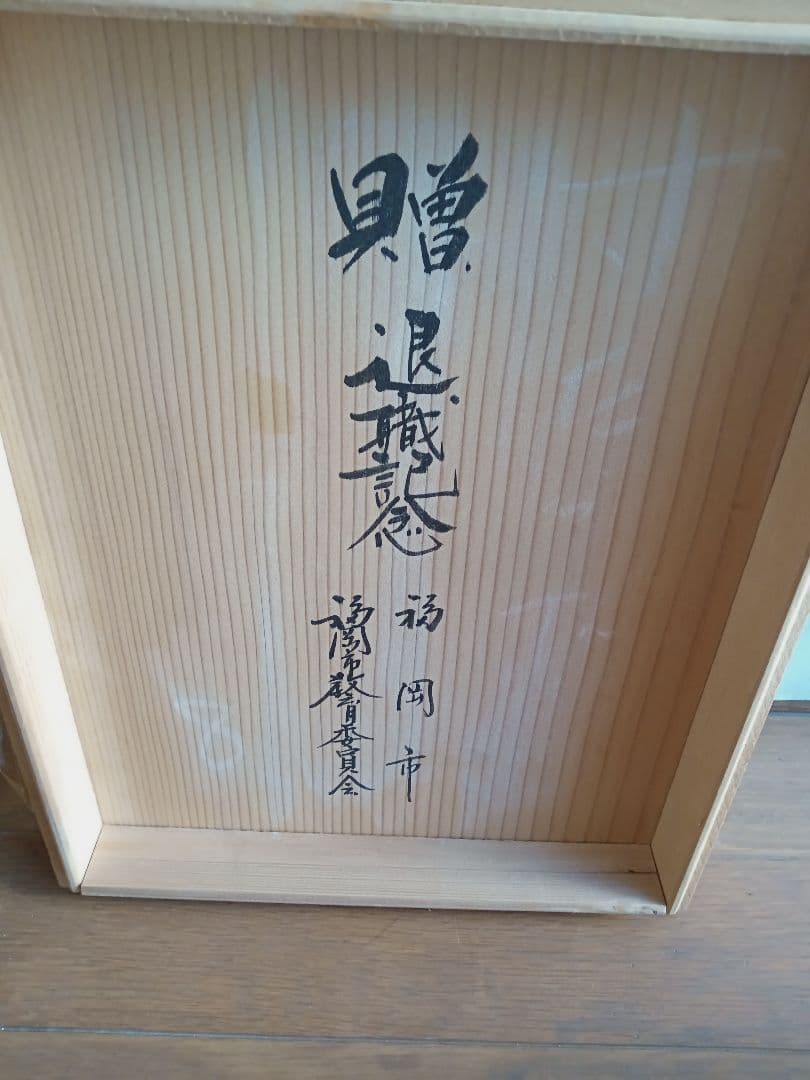 贈
退職記念
福岡市
福岡市教育委員会